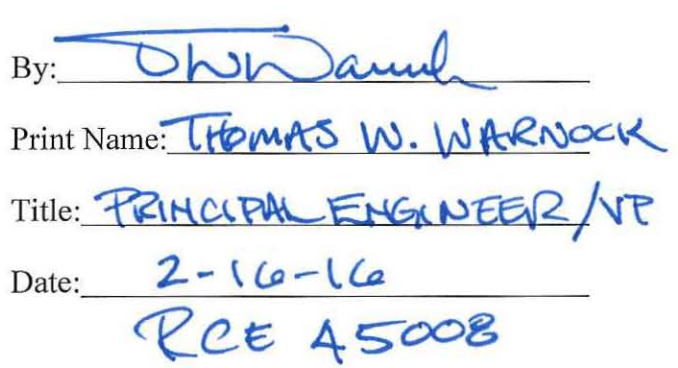 By: TWWarnock
Print Name: THOMAS W. WARNOCK
Title: PRINCIPAL ENGINEER/VP
Date: 2-16-16
RCE 45008